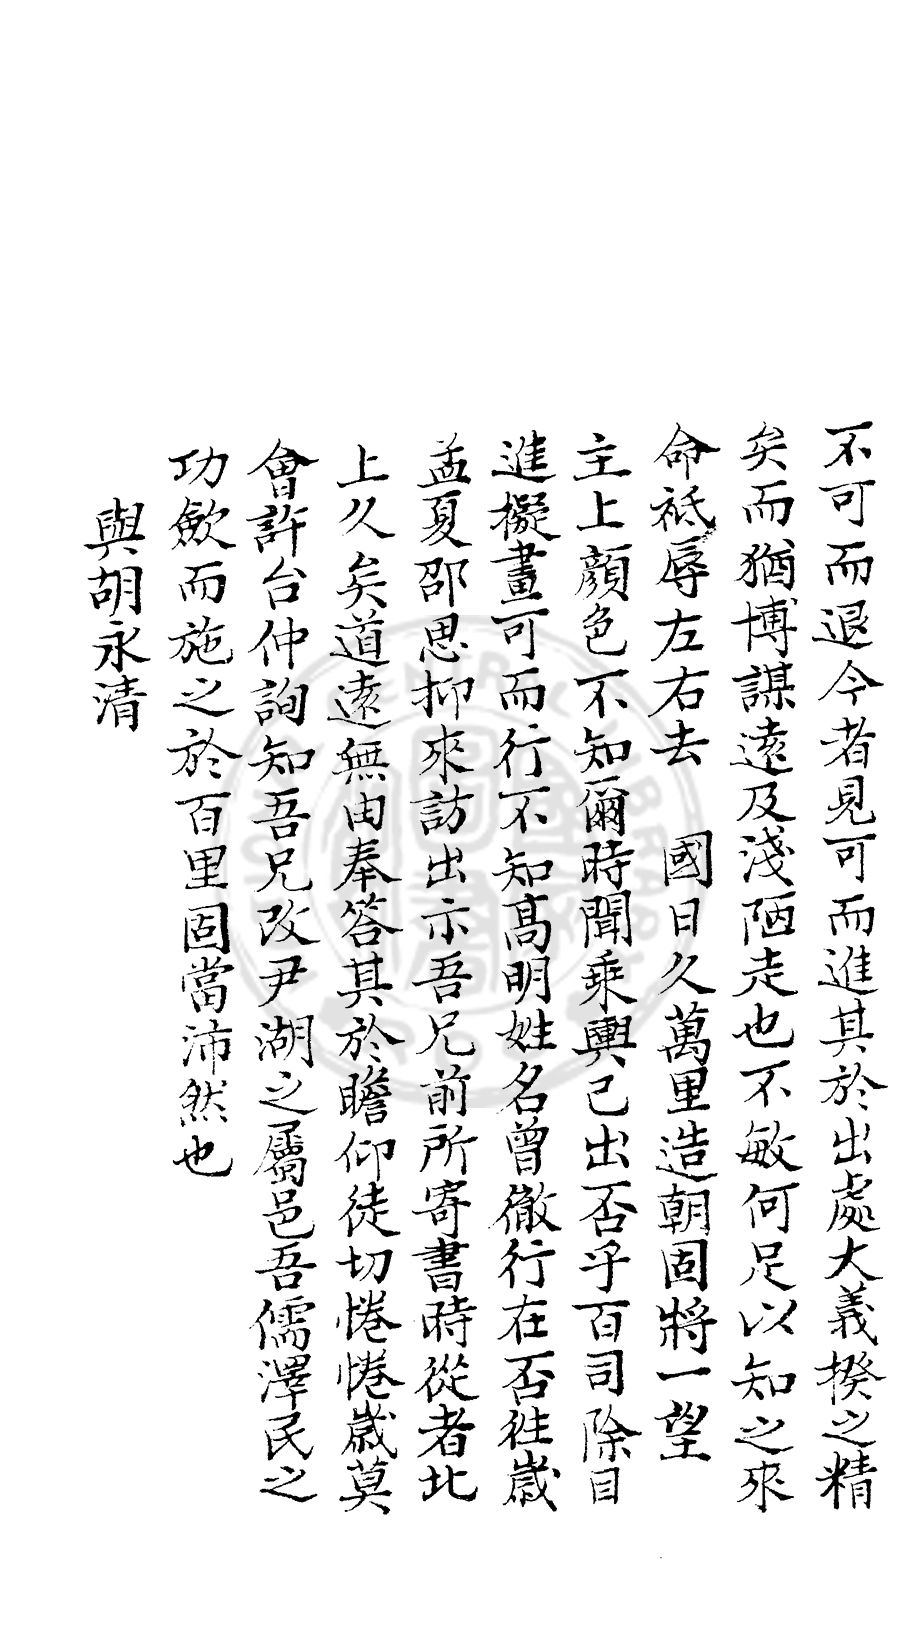 不可而退今者見可而進其於出處大義揆之精
矣而猶博謀遠及淺陋走也不敏何足以知之來
命祇辱左右去　國日久萬里造朝固將一望
主上顏色不知爾時聞乘輿已出否乎百司除目
進擬畫可而行不知髙明姓名曾徹行在否徃歲
孟夏邵思抑來訪出示吾兄前所寄書時從者北
上久矣道遠無由奉答其於瞻仰徒切惓惓歲莫
會許台仲詢知吾兄改尹湖之屬邑吾儒澤民之
功歛而施之於百里固當沛然也
與胡永清